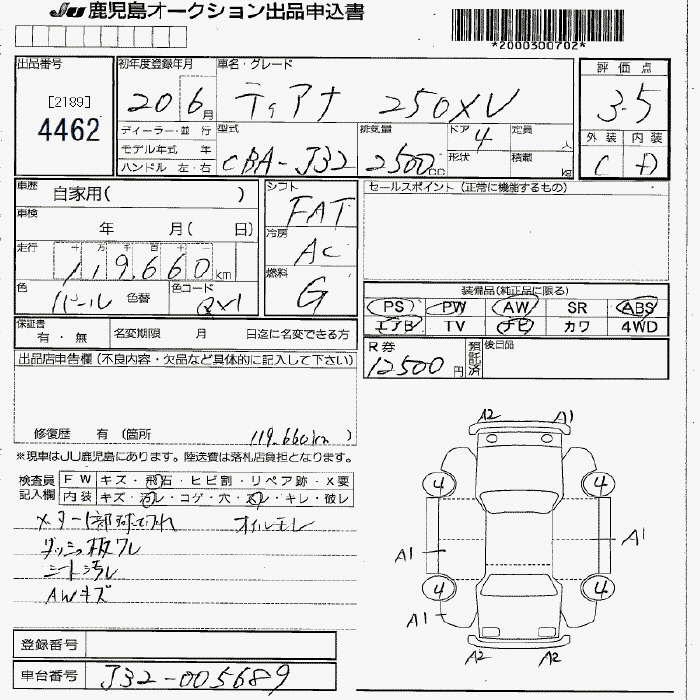 JU 鹿児島オークション出品申込書
*2000300702*
出品番号
[2189]
4462
初年度登録年月
20 6月
車名・グレード
ティアナ 250XV
評価点
3.5
外装 内装
C D
ディーラー・並行
モデル年式 年
ハンドル 左・右
型式
CBA-J32
排気量
2500cc
ドア
4
形状
定員
人
積載
kg
車歴
自家用( )
車検
年 月( 日)
走行
十万千百十一
119.660km
色
パール 色替
色コード
QX1
シフト
FAT
冷房
AC
燃料
G
セールスポイント (正常に機能するもの)
装備品(純正品に限る)
PS PW AW SR ABS
エアB TV ナビ カワ 4WD
保証書
有・無
名変期限 月 日迄に名変できる方
R券
12500円
預託済
後日品
出品店申告欄(不良内容・欠品など具体的に記入して下さい)
修復歴 有 (箇所 119.660km )
※現車はJU鹿児島にあります。陸送費は落札店負担となります。
検査員記入欄
FW キズ・飛石・ヒビ割・リペア跡・X要
内装 キズ・汚レ・コゲ・穴・スレ・キレ・破レ
メーター1部球切れ オイルモレ
ダッシュ板ワレ
シート汚レ
AWキズ
A2 A1
4 4
A1 A1
4 4
A1
A2 A2
登録番号
車台番号
J32-005689